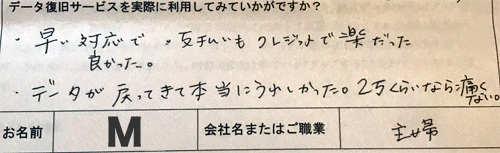 データ復旧サービスを実際に利用してみていかがですか？
・早い対応で
良かった。
・支払いもクレジットで楽だった
・データが戻ってきて本当にうれしかった。2万くらいなら痛く
ない。
お名前 M 会社名またはご職業 主婦